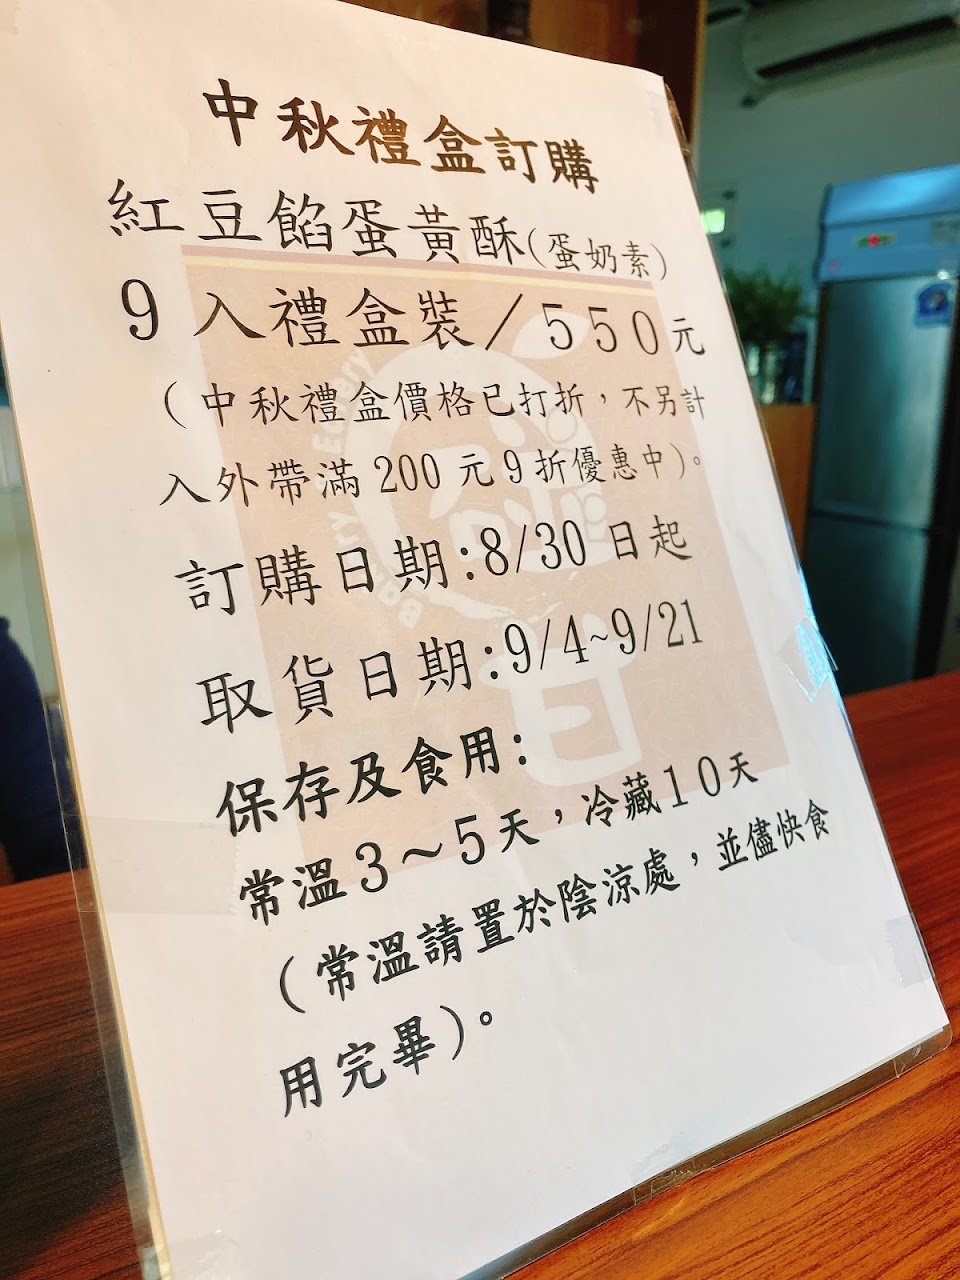 中秋禮盒訂購
紅豆餡蛋黃酥(蛋奶素)
9入禮盒裝/550元
(中秋禮盒價格已打折,不另計
入外帶滿200元9折優惠中)。
訂購日期:8/30日起
取貨日期:9/4~9/21
保存及食用:
常溫3~5天,冷藏10天
(常溫請置於陰涼處,並儘快食
用完畢)。